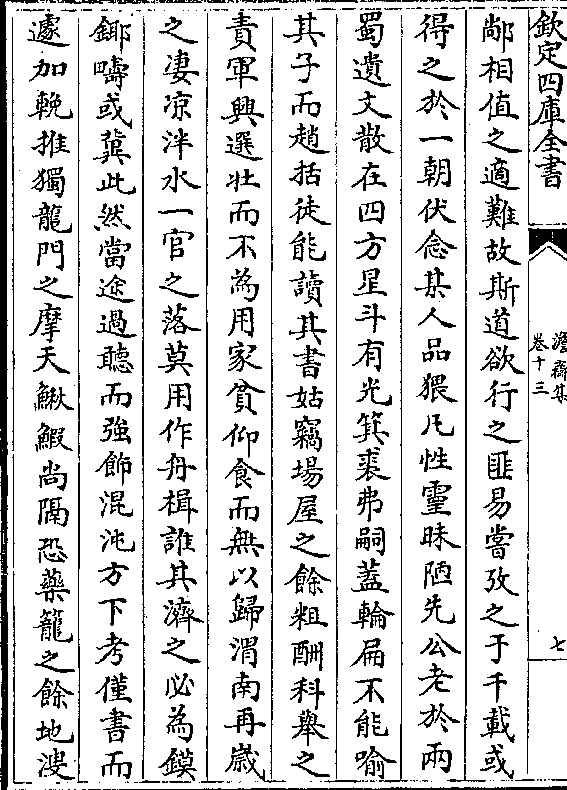 欽定四庫全書
澹齋集
卷十三
七
鄰相值之適難故斯道欲行之匪易嘗攷之于千載或
得之於一朝伏念某人品猥凡性靈昧陋先公老於兩
蜀遺文散在四方星斗有光箕裘弗嗣蓋輪扁不能喻
其子而趙括徒能讀其書姑竊場屋之餘粗酬科舉之
責軍興選壯而不為用家貧仰食而無以歸渭南再嵗
之凄凉泮水一官之落莫用作舟楫誰其濟之必為鏌
鎁疇或冀此然當途過聽而強飾混沌方下考僅書而
遽加輓推獨龍門之摩天鰍鰕尚隔恐藥籠之餘地溲